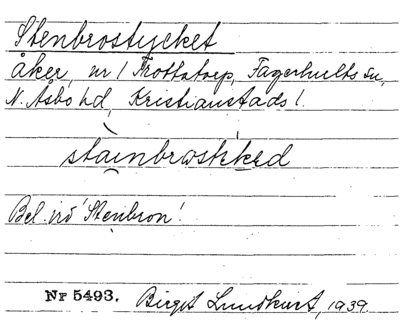 Stenbrostycket
åker, nr 1 Trottatorp, Fagerhults sn,
N. Åsbo hd, Kristianstads l.
Bel. vid 'Stenbron'.
Nr 5493. Birgit Lundkvist, 1939.